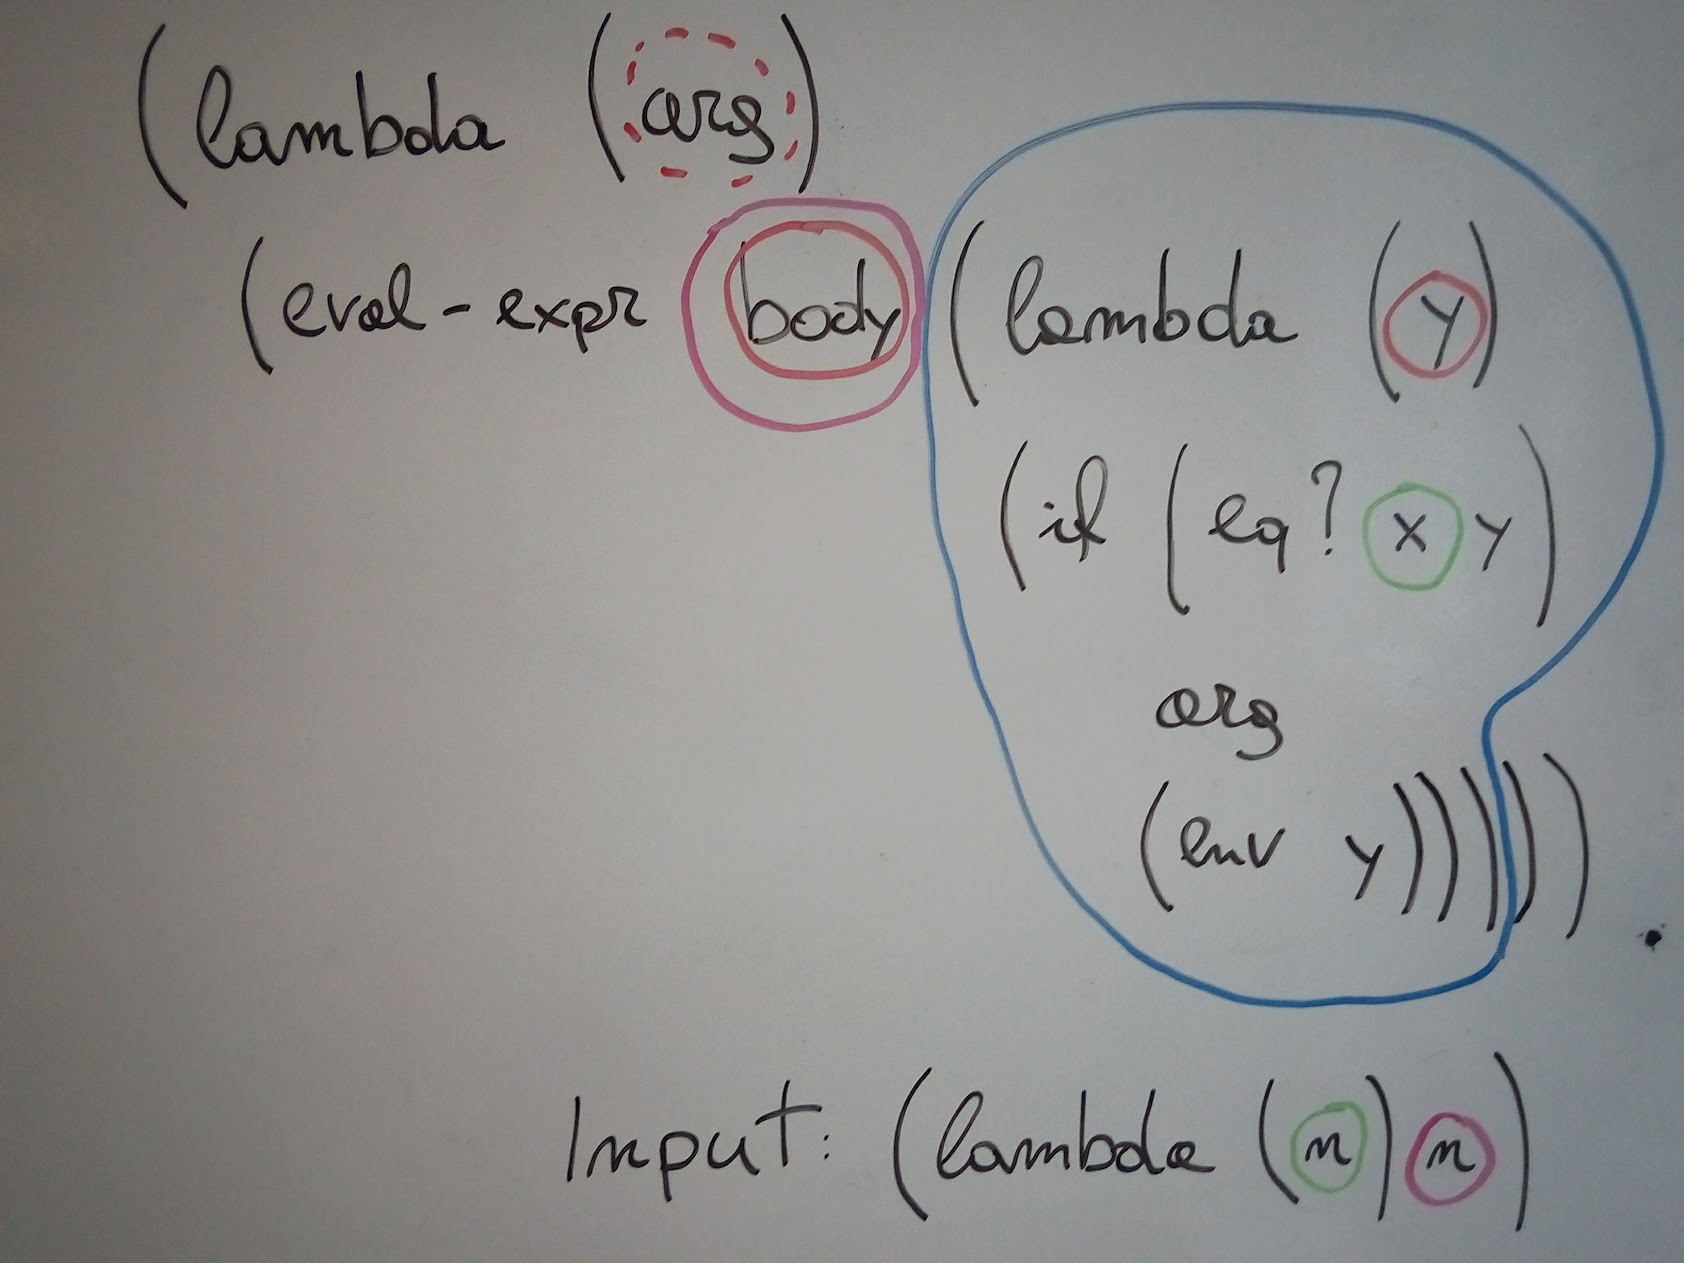 (lambda (arg)
(eval-expr body (lambda (y)
(if (eq? x y)
arg
(env y))))))
Input: (lambda (n) n)